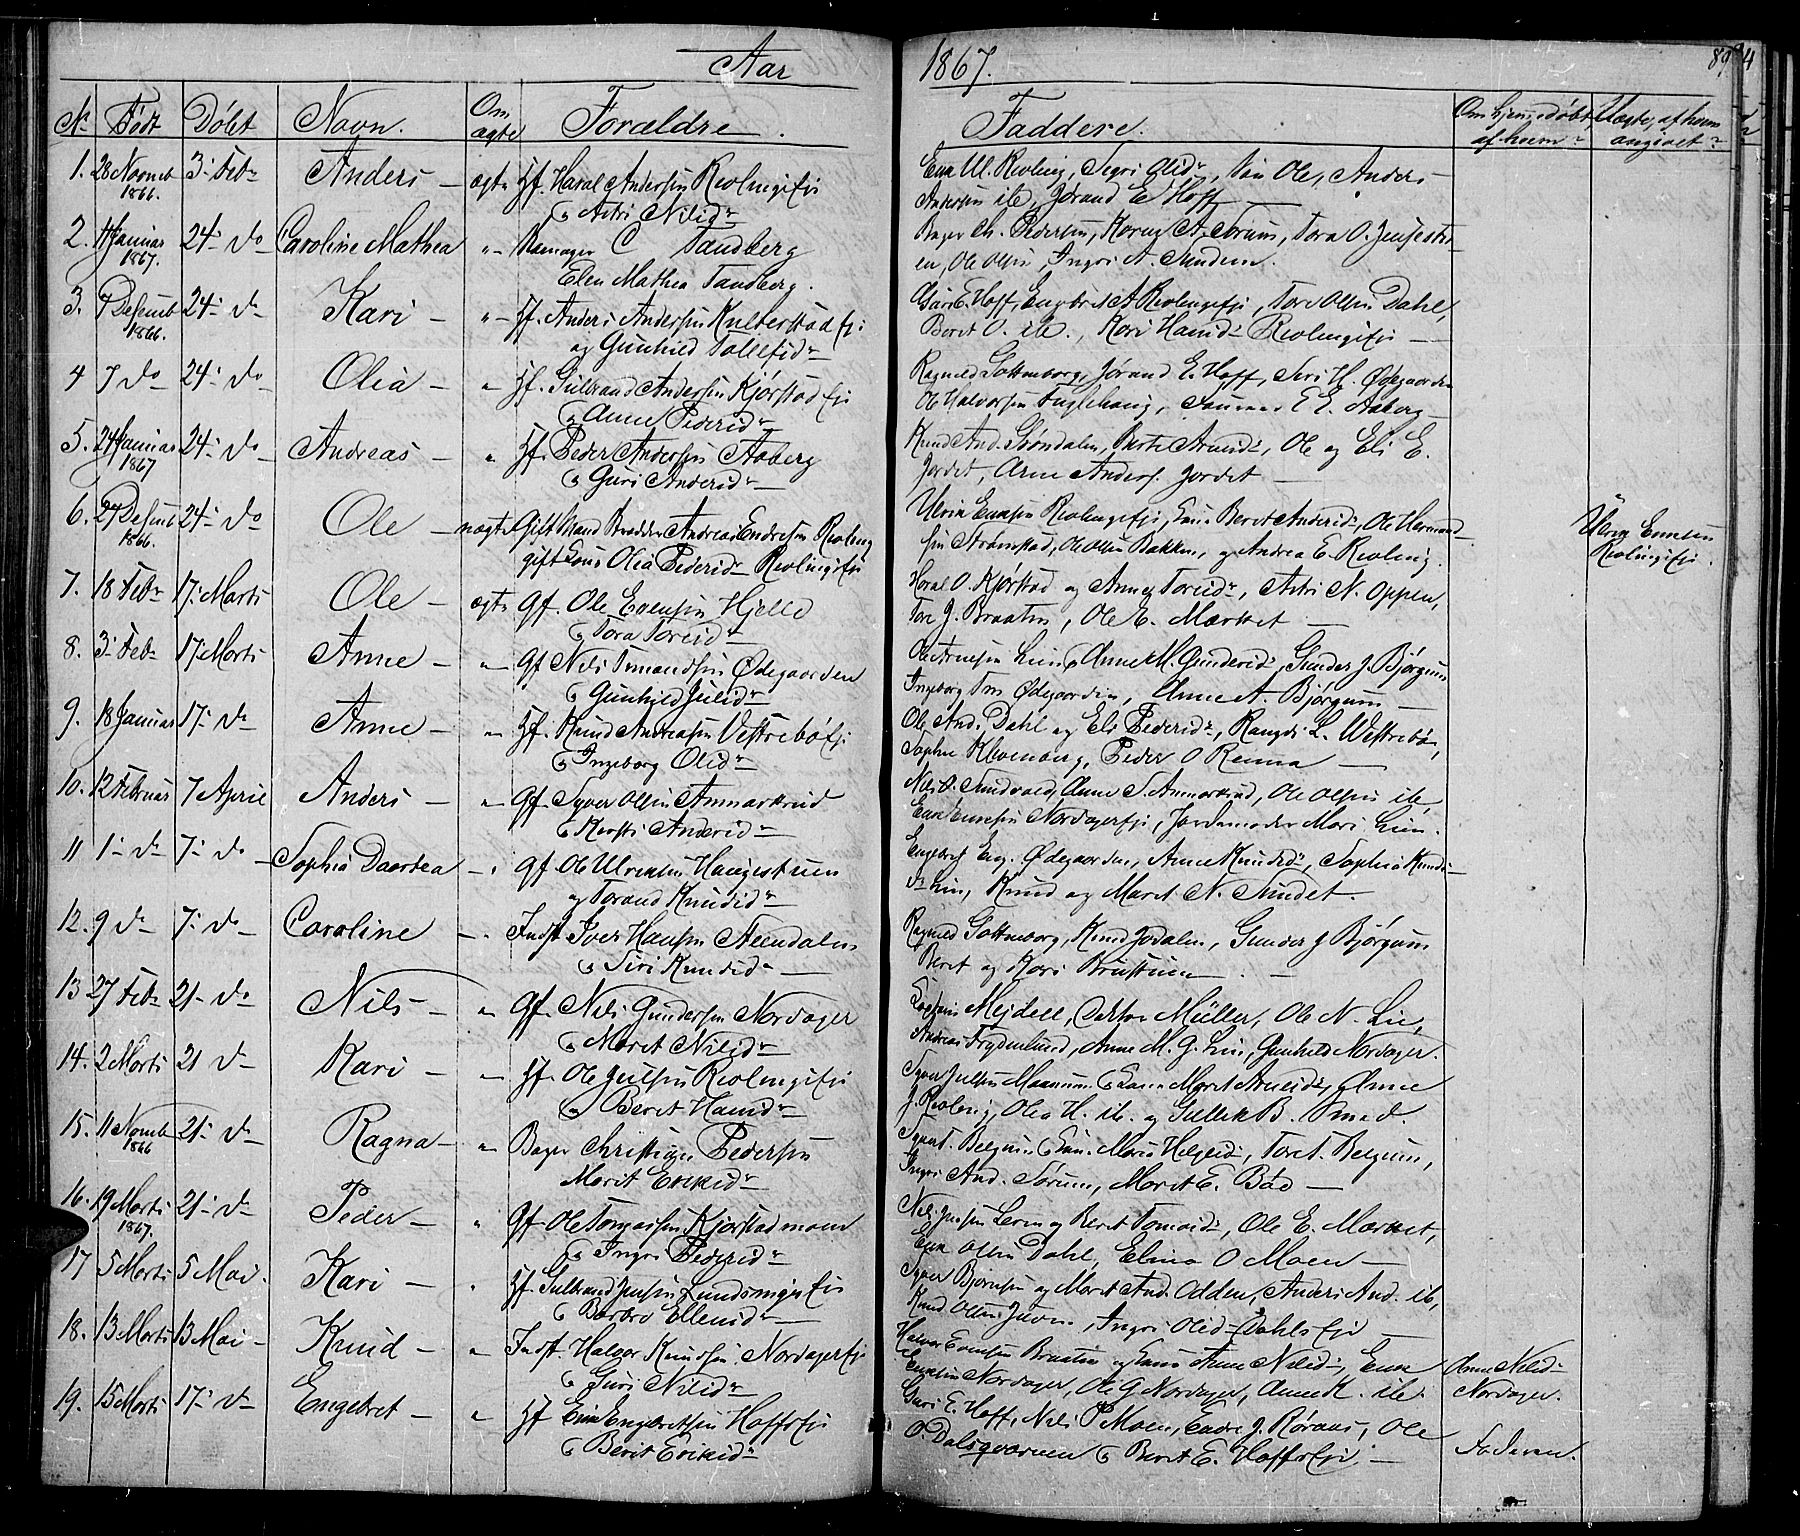 Aar 1867. 89
No Født Døbt Navn. Om ægte Forældre. Faddere. Om hjemmedøbt, af hvem? Uægte, af hvem angivet?
1. 28 Novmb 1866. 3- Febr Anders ægte Hf. Haral Andersen Kvolingsejs
& Astri Nilsdr
Even Ul. Kvoling, Segri Olsdr, Ole, Anders
Andersen ib, Jørand E. Hoff
2. Januar 1867. 24- do Caroline Mathea "- C Tandberg
Elen Mathea Tandberg.
Bager Ch. Pedersen, Karen A. Sørum, Tora O.
en, Ole Olsen, Ingri A. Sundeen.
3. 7 Desemb 1866. 24- do Kari "- Hf. Anders Andersen Hulterstad ejs
og Gunhild Tollefsdr
Guri E. Hoff, Engebret A. Kvolingsejs, Tore Olsen Dahl,
Beret O. ib., Kari Hansdr Kvolingsejs
4 7 do 24- do Olia " Hf. Gulbrand Andersen Kjørstad ejs
& Anne Pedersdr
Ragnild Gottenborg, Jørand E. Hoff, Siri H. Ødegaarden
Ole Halvorsen Fuglehaug, E. Aaberg
5. 24 Januar 1867 24- do Andreas " Hf. Peder Andersen Aaberg
& Guri Andersdr
Knud And. Grøndalen, Marte Arnesdr, Ole og Eli E.
Jordet, Arne Anders. Jordet
6. 27 Desmb 1866. 24- do Ole uægte Gift Mand Andreas Endresen Kvoling
gift Kone Olia Pedersdr Kvolingsejs
Ulrik Evensen Kvolingsejs, Kone Beret Andersdr, Ole Herman
sen Strømstad, Ole Olsen Bakken, og Andrea E. Kvoling.
Ulrik Evensen Kvolingsejs.
7. 18 Febr 17- Marts Ole ægte Gf. Ole Evensen Hjelle
& Tora Toresdr
Haral O. Kjørstad og Anne Toresdr, Astri N. Oppen,
Tore J. Braaten, Ole E. Mærket
8. 3- Febr 17 Marts Anne "- Gf Nils Amundsen Ødegaarden
& Gunhild Julsdr
Ole Arnesen Lien & Anne M. Gundersdr, Gunder J. Bjørgum
Ingeborg Ødegaarden, Anne A. Bjørgum
9. 18 Januar 17- do Anne "- Hf. Knud Andreasen Vestrebø ejs
& Ingeborg Olsdr
Ole And. Dahl og Eli Pedersdr, Rangdi L. Westrebø,
Sophie Klevenberg, Peder O Renna
10. 12 Februar 7 April Anders " Gf. Syver Olsen Ammerkrud
& Kersti Andersdr
Nils O. Sundvold, Anne S. Ammerkrud, Ole Olsen ib,
Even Evensen Nordagerejs, Jordemoder Mari Lien.
11 1- do 7- do Sophia Daartea " Gf. Ole Ulriksen Haugestuen
og Torand Knudsdr
Engebret Eng. Ødegaarden, Anne Knudsdr, Sophia Knuds
dr Lien, Knud og Maret N. Sundet.
12. 9 do 7- do Caroline " Indst. Iver Hansen
& Siri Knudsdr
Ragnild Gottenborg, Knud Jodalen, Gunder J Bjørgum
Beret og Kari Brustuen
13 27 Febr 21- do Nils " Gf. Nils Gundersen Nordager
& Maret Nilsdr
Mejdell, Doktor Müller, Ole N. Lie,
Andreas Frydenlund, Anne M. G. Lien, Gunhild Nordager.
14. 2 Marts 21 do Kari " Hf. Ole Julsen Kvolingsejs
& Beret Hansdr
Syver Julsen Maanum & Kone Maret Arnesdr, Anne
J. Kvoling, Olea H. ib. og Gullek B. Smed.
15. 11 Novmb 1866 21- do Ragna " Bager Christian Pedersen
Marit Eriksdr
Syver T. Belgum & Kone Mari Helgesdr, Tore T. Belgum,
Ingri And. Sørum, Marit E. Bøe
16. 19 Marts 1867. 21- do Peder " Gf. Ole Tomassen Kjørstadmoen
& Ingri Pedersdr
Nils Jensen Leren og Beret Tomasdr, Ole E. Mærket,
Even Olsen Dahl, Elina O Moen
17 5 Marts 5 Mai. Kari " Hf. Gulbrand Jensen Lundemogens ejs
& Barbro Ellensdr
Syver Bjørnsen og Marit And. Odden, Anders And. ib,
Knud Olsen Juven, Ingri Olsdr Dahlsejs
18. 13 Marts 13 Mai Knud " Indst. Halvor Knudsen Nordagerejs
& Guri Nilsdr
Halvor Evensen Braaten og Kone Anne Nilsdr, Even
Evensen Nordager, Ole G Nordager, Anne K. ib.
Anne Nilsdr Nordager.
19. 15 Marts 17- do Engebret " Hf Even Engebretsen Hoffsejs
& Berit Eriksdr
Guri E. Hoff, Nils P Moen, Endre J. Røraas, Ole
O Dalsqværnen & Beret E. Hoffsejs.
Faderen.